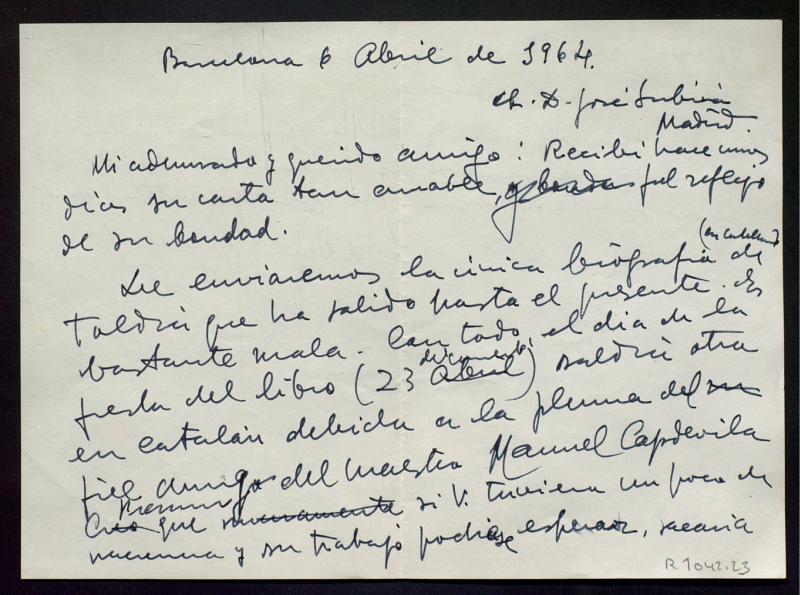 Barcelona 6 Abril de 1964.
Sr. D. José Subirá
Madrid.
Mi admirado y querido amigo: Recibí hace unos
días su carta tan amable, fiel reflejo
de su bondad.
(en catalán)
Le enviaremos la única biografía de
Toldrá que ha salido hasta el presente. Es
bastante mala. Con todo, el día de la
fiesta del libro (23 Abril) saldrá otra
en catalán debida a la pluma del su
fiel amigo del maestro Manuel Capdevila
Creo que si V. tuviera un poco de
y su trabajo podía esperar, sacaría
R 1042.23